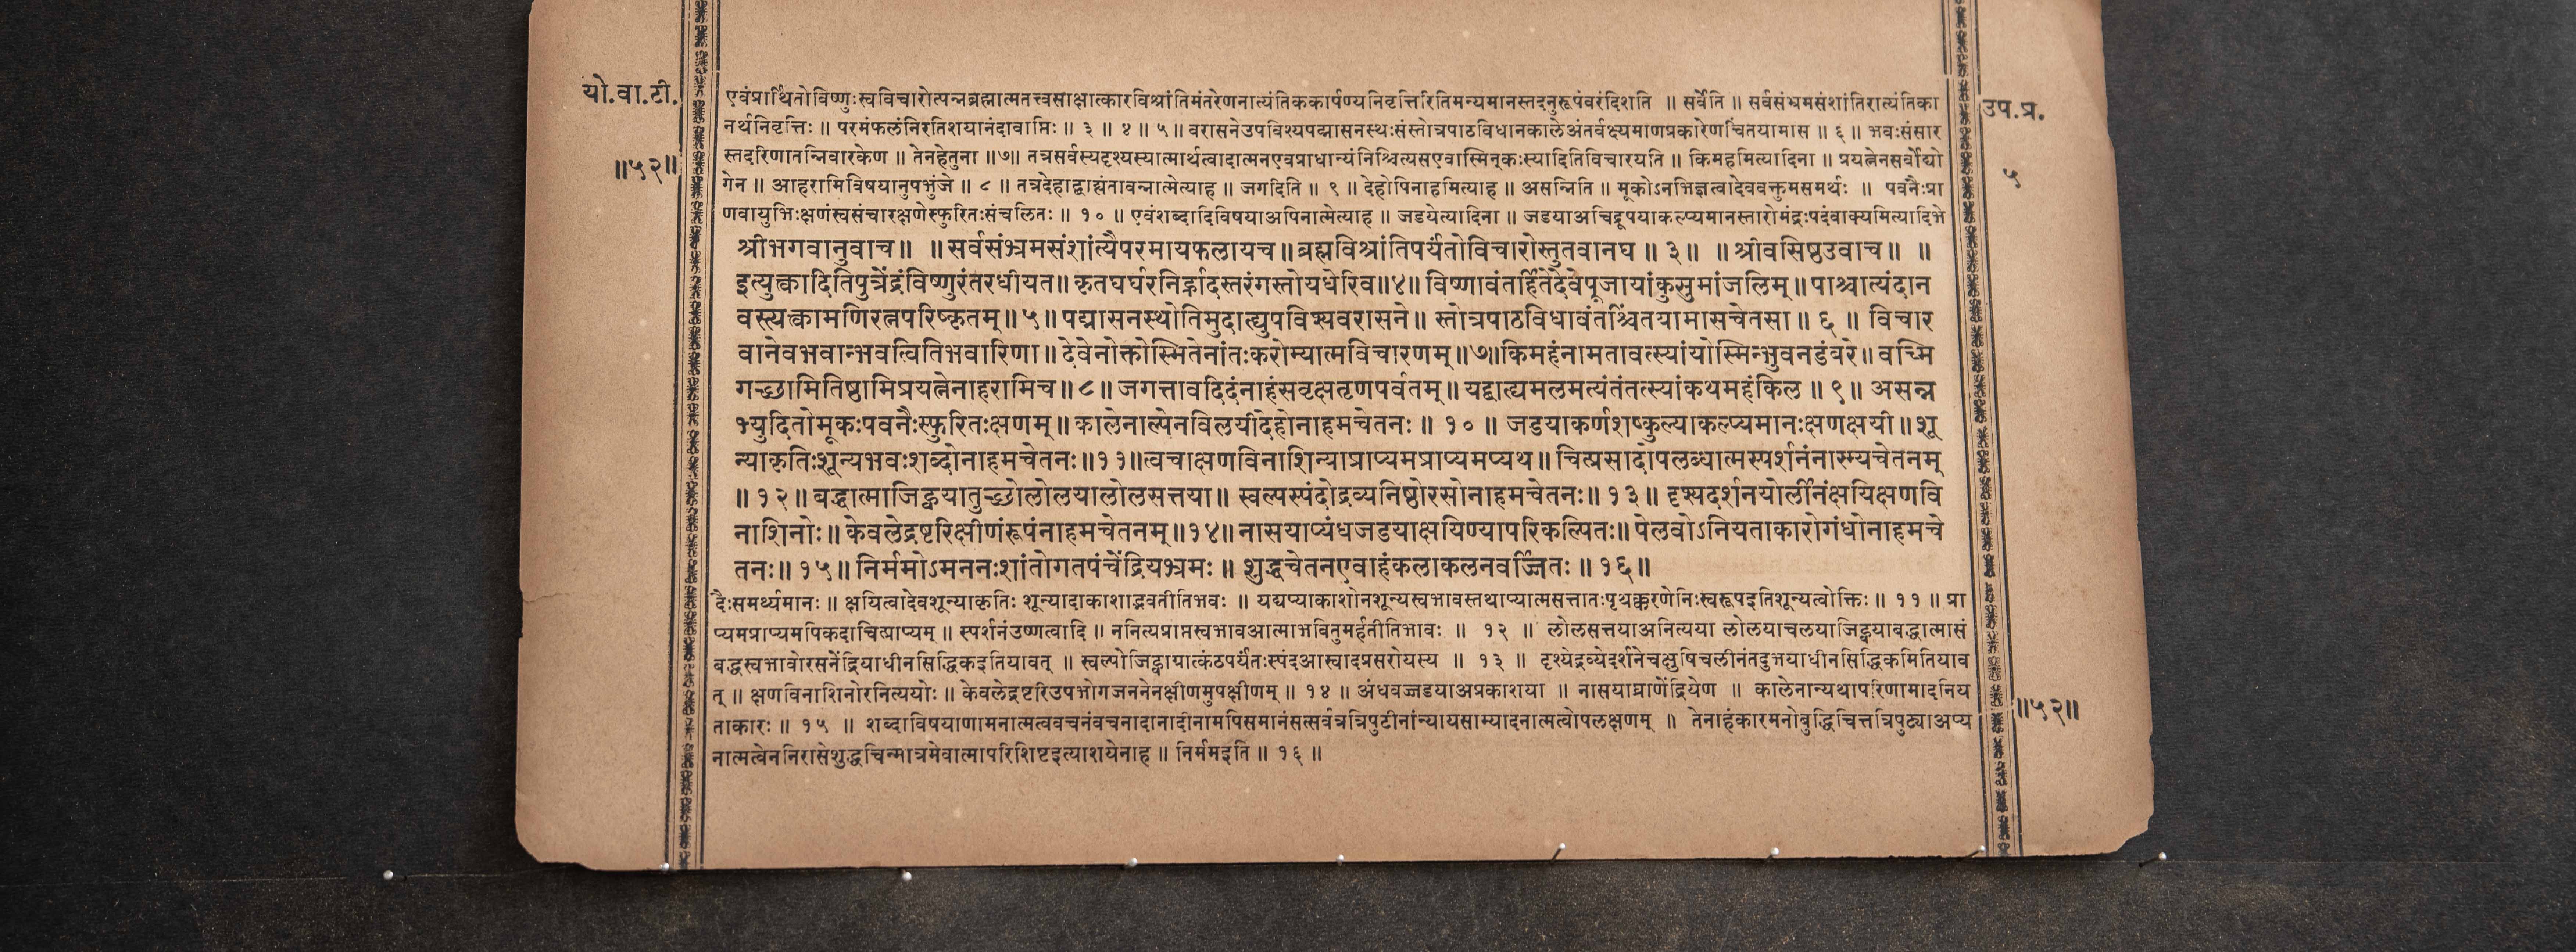 यो.वा.टी.
॥५२॥
एवंप्रार्थितोविष्णुःस्वविचारोत्पन्नब्रह्मात्मतत्त्वसाक्षात्कारविश्रांतिमंतरेणनात्यंतिककार्पण्यनिवृत्तिरितिमन्यमानस्तदनुरूपंवरंदिशति ॥ सर्वेति ॥ सर्वसंभ्रमसंशांतिरात्यंतिका
नर्थनिवृत्तिः ॥ परमंफलंनिरतिशयानंदावाप्तिः ॥ ३ ॥ ४ ॥ ५ ॥ वरासनेउपविश्यपद्मासनस्थःसंस्तोत्रपाठविधानकालेअंतर्वक्ष्यमाणप्रकारेणचिंतयामास ॥ ६ ॥ भवःसंसार
स्तदरिणातन्निवारकेण ॥ तेनहेतुना ॥७॥ तत्रसर्वस्यदृश्यस्यात्मार्थत्वादात्मनएवप्राधान्यंनिश्चित्यसएवास्मिन्कःस्यादितिविचारयति ॥ किमहमित्यादिना ॥ प्रयत्नेनसर्वोद्यो
गेन ॥ आहरामिविषयानुपभुंजे ॥ ८ ॥ तत्रदेहाद्बाह्यंतावन्नात्मेत्याह ॥ जगदिति ॥ ९ ॥ देहोपिनाहमित्याह ॥ असन्निति ॥ मूकोऽनभिज्ञत्वादेववक्तुमसमर्थः ॥ पवनैःप्रा
णवायुभिःक्षणंस्वसंचारक्षणेस्फुरितःसंचलितः ॥ १० ॥ एवंशब्दादिविषयाअपिनात्मेत्याह ॥ जडयेत्यादिना ॥ जडयाअचिद्रूपयाकल्प्यमानस्तारोमंद्रःपदंवाक्यमित्यादिभे
श्रीभगवानुवाच॥ ॥ सर्वसंभ्रमसंशांत्यैपरमायफलायच॥ब्रह्मविश्रांतिपर्यंतोविचारोस्तुतवानघ ॥ ३॥ ॥ श्रीवसिष्ठउवाच॥ ॥
इत्युत्कादितिपुत्रेंद्रंविष्णुरंतरधीयत॥ कृतघर्घरनिर्ह्रादस्तरंगस्तोयधेरिव॥४॥ विष्णावंतर्हितेदेवेपूजायांकुसुमांजलिम्॥पाश्चात्यंदान
वस्त्यत्कामणिरत्नपरिष्कृतम्॥५॥पद्मासनस्थोतिमुदात्ह्युपविश्यवरासने॥ स्तोत्रपाठविधावंतश्चिंतयामासचेतसा॥ ६ ॥ विचार
वानेवभवान्भवत्वितिभवारिणा॥देवेनोक्तोस्मितेनांतःकरोम्यात्मविचारणम्॥७॥किमहंनामतावत्स्यांयोस्मिन्भुवनडंबरे॥ वच्मि
गच्छामितिष्ठामिप्रयत्नेनाहरामिच॥८॥ जगत्तावदिदंनाहंसवृक्षतृणपर्वतम्॥ यद्बाह्यमलमत्यंतंतत्स्यांकथमहंकिल ॥ ९॥ असन्न
भ्युदितोमूकःपवनैःस्फुरितःक्षणम्॥कालेनाल्पेनविलयीदेहोनाहमचेतनः ॥ १० ॥ जडयाकर्णशष्कुल्याकल्प्यमानःक्षणक्षयी॥शू
न्याकृतिःशून्यभवःशब्दोनाहमचेतनः॥११॥त्वचाक्षणविनाशिन्याप्राप्यमप्राप्यमप्यथ॥ चित्प्रसादोपलब्धात्मस्पर्शनंनास्म्यचेतनम्
॥ १२॥ बद्धात्माजिह्वयातुच्छोलोलयालोलसत्तया॥ स्वल्पस्पंदोद्रव्यनिष्ठोरसोनाहमचेतनः॥ १३॥ दृश्यदर्शनयोर्लीनंक्षयिक्षणवि
नाशिनोः॥ केवलेद्रष्टरिक्षीणंरूपंनाहमचेतनम्॥१४॥ नासयाप्यंधजडयाक्षयिण्यापरिकल्पितः॥ पेलवोऽनियताकारोगंधोनाहमचे
तनः॥ १५॥ निर्ममोऽमननःशांतोगतपंचेंद्रियभ्रमः ॥ शुद्धचेतनएवाहंकलाकलनवर्ज्जितः ॥ १६॥
दैःसमर्थ्यमानः ॥ क्षयित्वादेवशून्याकृतिः शून्यादाकाशाद्भवतीतिभवः ॥ यद्यप्याकाशोनशून्यस्वभावस्तथाप्यात्मसत्तातःपृथक्करणेनिःस्वरूपइतिशून्यत्वोक्तिः ॥ ११ ॥ प्रा
प्यमप्राप्यमपिकदाचित्प्राप्यम् ॥ स्पर्शनंउष्णत्वादि ॥ ननित्यप्राप्तस्वभावआत्माभवितुमर्हतीतिभावः ॥ १२ ॥ लोलसत्तयाअनित्यया लोलयाचलयाजिह्वयाबद्धात्मासं
बद्धस्वभावोरसनेंद्रियाधीनसिद्धिकइतियावत् ॥ स्वल्पोजिह्वाग्रात्कंठपर्यंतःस्पंदआस्वादप्रसरोयस्य ॥ १३ ॥ दृश्येद्रव्येदर्शनेचक्षुषिचलीनंतदुभयाधीनसिद्धिकमितियाव
त् ॥ क्षणविनाशिनोरनित्ययोः ॥ केवलेद्रष्टरिउपभोगजननेनक्षीणमुपक्षीणम् ॥ १४ ॥ अंधवज्जडयाअप्रकाशया ॥ नासयाघ्राणेंद्रियेण ॥ कालेनान्यथापरिणामादनिय
ताकारः ॥ १५ ॥ शब्दाविषयाणामनात्मत्ववचनंवचनादानादीनामपिसमानंसत्सर्वत्रत्रिपुटीनांन्यायसाम्यादनात्मत्वोपलक्षणम् ॥ तेनाहंकारमनोबुद्धिचित्तत्रिपुट्याअप्य
नात्मत्वेननिरासेशुद्धचिन्मात्रमेवात्मापरिशिष्टइत्याशयेनाह ॥ निर्ममइति ॥ १६ ॥
उप.प्र.
५
॥५२॥